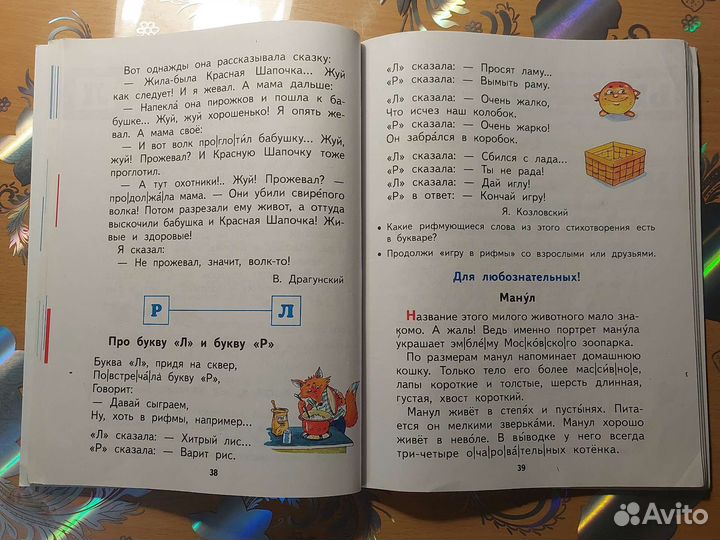 Вот однажды она рассказывала сказку:
— Жила-была Красная Шапочка... Жуй
как следует! И я жевал. А мама дальше:
— Напекла́ она пирожков и пошла к ба-
бушке... Жуй, жуй хорошенько! Я опять же-
вал. А мама своё:
— И вот волк про|гло|ти́л бабушку... Жуй,
жуй! Прожевал? И Красную Шапочку тоже
проглотил.
— А тут охотники!.. Жуй! Прожевал? —
про|дол|жа́|ла мама. — Они убили свире́пого
волка! Потом разрезали ему живот, а оттуда
выскочили бабушка и Красная Шапочка! Жи-
вые и здоровые!
Я сказал:
— Не прожевал, значит, волк-то!
В. Драгунский
Р Л
Про букву «Л» и букву «Р»
Буква «Л», придя на сквер,
По|встре|ча́|ла букву «Р»,
Говорит:
— Давай сыграем,
Ну, хоть в рифмы, например...
«Л» сказала: — Хитрый лис...
«Р» сказала: — Варит рис.
38
«Л» сказала: — Просят ламу...
«Р» сказала: — Вымыть раму.
«Л» сказала: — Очень жалко,
Что исчез наш колобок.
«Р» сказала: — Очень жарко!
Он забра́лся в коробок.
«Л» сказала: — Сбился с лада...
«Р» сказала: — Ты не рада!
«Л» сказала: — Дай иглу!
«Р» в ответ: — Кончай игру!
Я. Козловский
• Какие рифмующиеся слова из этого стихотворения есть
в букваре?
• Продолжи «игру в рифмы» со взрослыми или друзьями.
Для любознательных!
Ману́л
Название этого милого животного мало зна-
комо. А жаль! Ведь именно портрет ману́ла
украшает эм|бле́|му Мос|ко́в|ско|го зоопарка.
По размерам манул напоминает домашнюю
кошку. Только тело его более мас|си́в|но|е,
лапы короткие и толстые, шерсть длинная,
густая, хвост короткий.
Манул живёт в степя́х и пусты́нях. Пита-
ется он мелкими зверьками. Манул хорошо
живёт в нево́ле. В вы́водке у него всегда
три-четыре о|ча|ро|ва́|тель|ных котёнка.
39
Avito